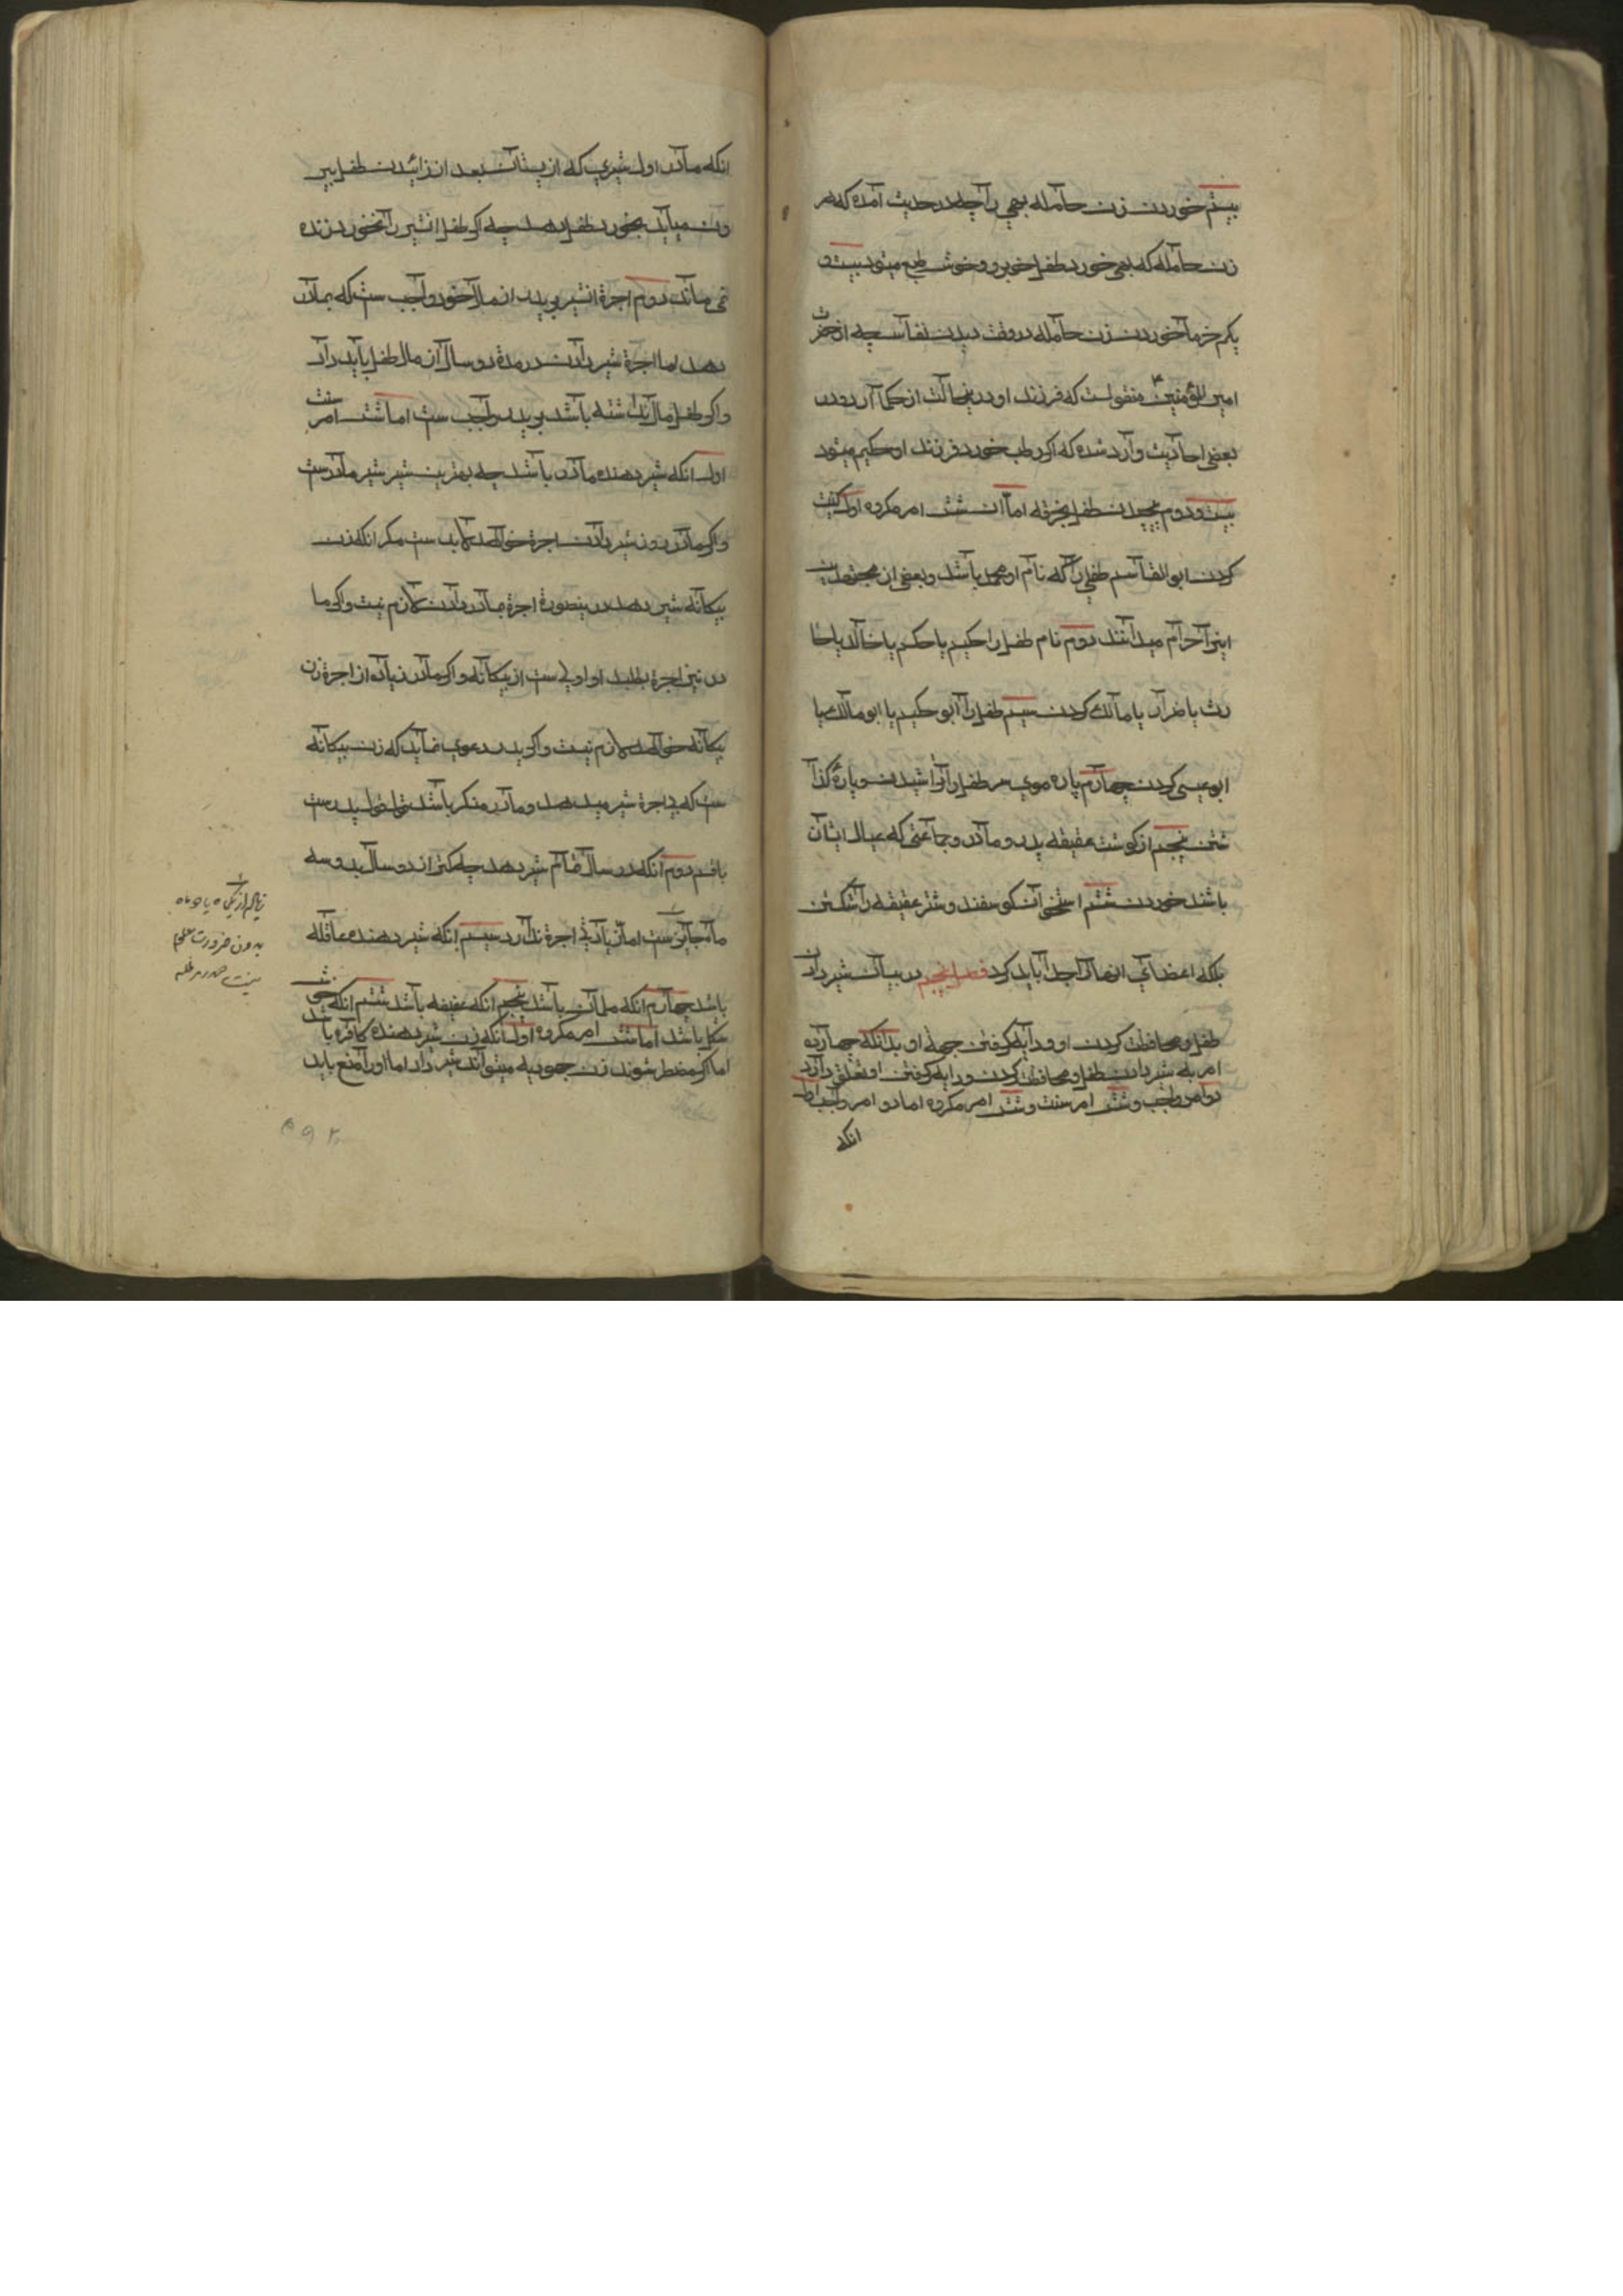 بیستم خوردن زن حامله بهی را چه در حدیث آمده که هر
زن حامله که بهی خورد طفل خوبرو و خوش طبع میشود بیست و
یکم خرما خوردن زن حامله در وقت دیدن نفاس چه از حضرت
امیر المؤمنین ع منقولست که فرزند او در ینحالت از حکما آرد و در
بعضی احادیث وارد شده که اکر رطب خورد فرزند او حکیم میشود
بیست و دوم پیچیدن طفل بخرقه اما ان شش امر مکروه اول کنیت
کردن ابو القاسم طفلی را که نام او محمد باشد و بعضی از مجتهدین
اینرا حرام میدانند دوم نام طفل را حکیم یا حکم یا خالد یا حا
رث یا ضرار یا مالک کردن سیم طفل را ابو حکیم یا ابو مالک یا
ابو عیسی کردن چهارم پاره موی سر طفل را تراشیدن و پارۀ کذا
شتن پنجم از کوشت عقیقه پدر و مادر و جماعتی که عیال ایشان
باشند خوردن ششم استخوان کوسفند و شتر عقیقه را شکستن
بلکه اعضای انها را جدا باید کرد فصل پنجم در بیان شیر دادن
طفل و محافظت کردن او و دایه کرفتن جهة او بدانکه چهارده
امر به شیر دادن طفل و محافظت کردن و دایه کرفتن او تعلق دارد
دو امر واجب و شش امر سنت و شش امر مکروه اما دو امر واجب اول
انکه
انکه مادر اول شیری که از پستان بعد از زائیدن طفل بیر
ون میاید بخورد طفل دهد چه اکر طفل انشیر را نخورد زنده
نمی ماند دوم اجرة انشیر بر پدر از مال خود واجب ست که بمادر
دهد اما اجرة شیر دادن در مدة دو سال از مال طفل باید داد
واکر طفل مال نداشته باشد بر پدر واجب ست اما شش امر سنت
اول انکه شیر دهنده مادر باشد چه بهترین شیر شیر مادرست
واکر مادر روز شیر دادن اجرة خواهد لابد ست مکر انکه زن
بیکانه شیر دهد در ینصورة اجرة مادر دادن لازم نیست واکر ما
در نیز اجرة بطلبد او اولی ست از بیکانه واکر مادر زیاده از اجرة زن
بیکانه خواهد لازم نیست واکر پدر دعوی نماید که زن بیکانه
ست که بی اجرة شیر میدهد و مادر منکر باشد قول قول پدرست
با قسم دوم انکه دو سال تمام شیر دهد چه کمتر از دو سال بدو سه
ماه جایز ست اما زیادتی اجرة ندارد سیم انکه شیر دهنده عاقله
باشد چهارم انکه مسلمان باشد پنجم انکه عفیفه باشد ششم انکه خوش
شکل باشد اما شش امر مکروه اول انکه زن شیر دهنده کافره باشد
اما اکر مضطر شوند زن جهودیه میتواند شیر داد اما او را منع باید
زیاده از یک ماه یا دو ماه
بدون ضرورت